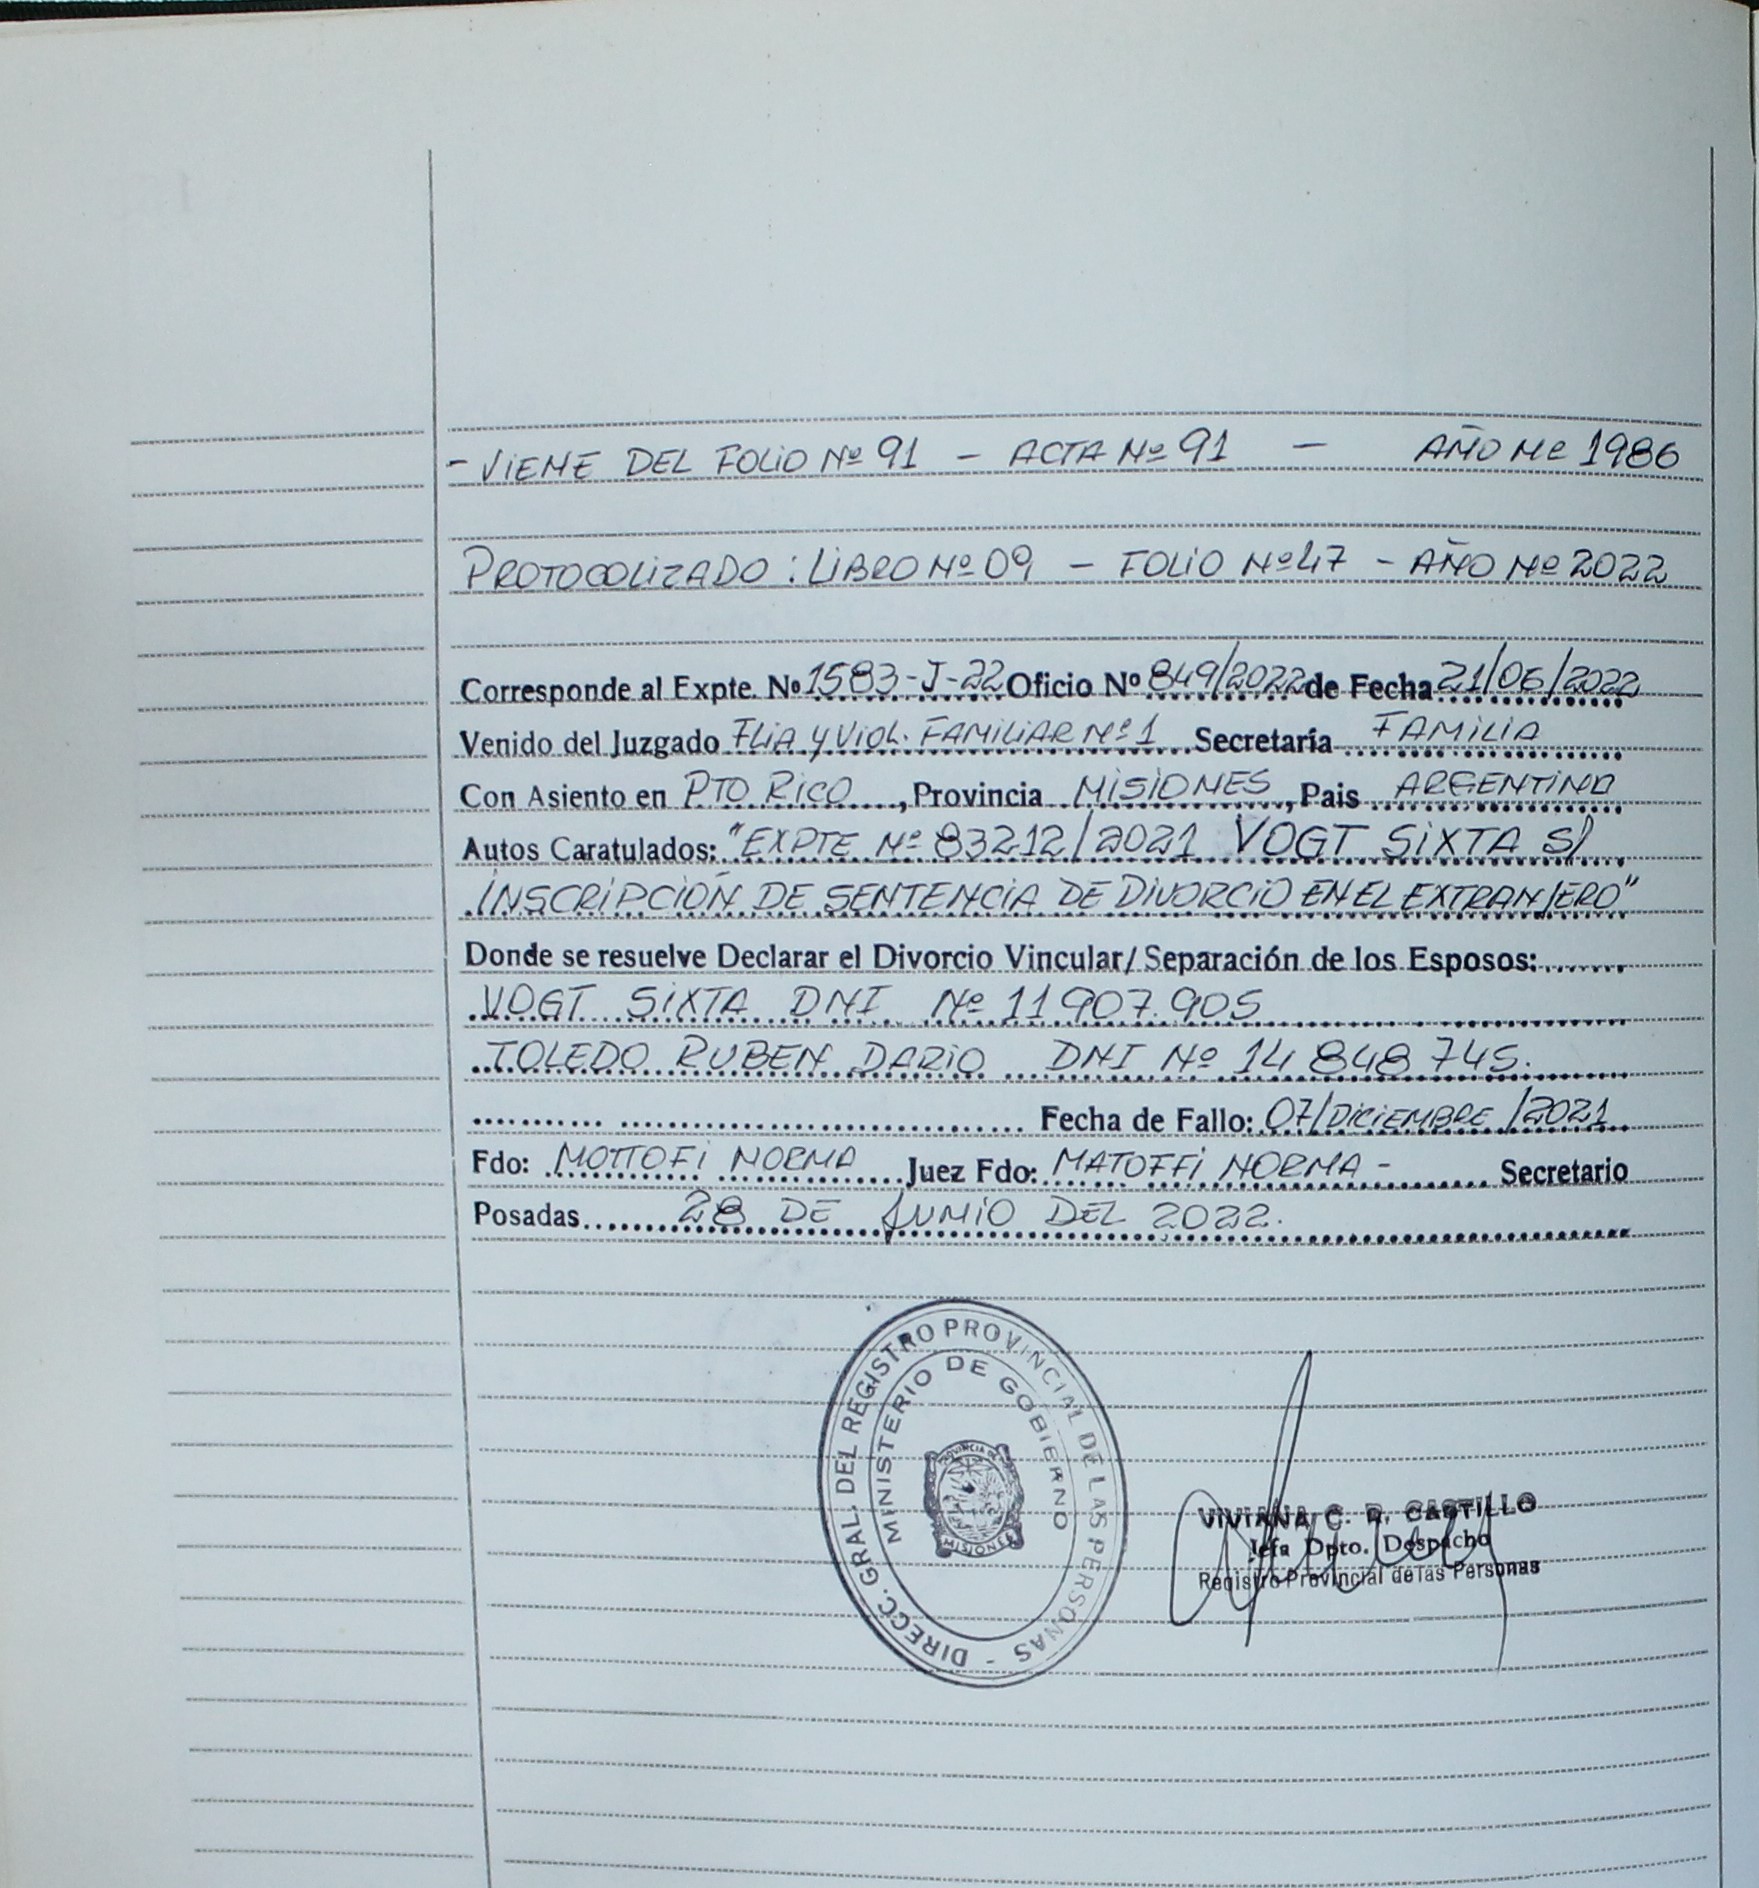 - VIENE DEL FOLIO Nº 91 - ACTA Nº 91 - AÑO Nº 1986
PROTOCOLIZADO: LIBRO Nº 09 - FOLIO Nº 47 - AÑO Nº 2022
Corresponde al Expte. Nº 1583-J-22 Oficio Nº 849/2022 de Fecha 21/06/2022
Venido del Juzgado FLIA Y VIOL. FAMILIAR Nº 1 Secretaría FAMILIA
Con Asiento en PTO RICO, Provincia MISIONES, Pais ARGENTINO
Autos Caratulados: "EXPTE Nº 83212/2021 VOGT SIXTA S/
INSCRIPCIÓN DE SENTENCIA DE DIVORCIO EN EL EXTRANJERO"
Donde se resuelve Declarar el Divorcio Vincular/Separación de los Esposos:
VOGT SIXTA DNI Nº 11907.905
TOLEDO RUBEN DARIO DNI Nº 14 848 745.
Fecha de Fallo: 07/DICIEMBRE/2021
Fdo: MOTTOFI NORMA Juez Fdo: MATOFFI NORMA - Secretario
Posadas 28 DE JUNIO DEL 2022.
DIRECC. GRAL. DEL REGISTRO PROVINCIAL DE LAS PERSONAS -
MINISTERIO DE GOBIERNO
PROVINCIA DE
MISIONES
VIVIANA C. R. CASTILLO
Jefa Dpto. Despacho
Registro Provincial de las Personas